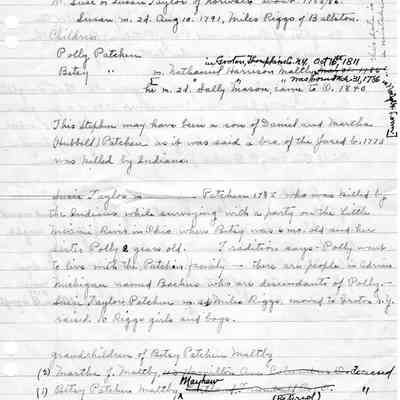 m. Susie or Susan Taylor of Norwalk about 1785/86.
Susan m. 2d. Aug 10. 1791, Miles Riggs of Ballston.
Children
Polly Patchen
in Groton, Thompkins Co. N.Y. Oct 16th 1811
Betsy " m. Nathaniel Harrison Maltby
was born Oct. 31, 1786 in
he m. 2d. Sally Mason, came to O. 1840
This Stephen may have been a son of Daniel and Martha
(Hubbell) Patchen as it was said a bro. of the Jared b. 1773
was killed by Indians.
Susie Taylor m. Patchen 1785 who was killed by
the Indians while surveying with a party on the Little
Miami River in Ohio when Betsy was 6 mo. old and her
sister Polly 2 years old. Tradition says - Polly went
to live with the Patchin family - there are people in Adrian
Michigan named Backus who are descendants of Polly.-
Susie Taylor Patchen m. Miles Riggs, moved to Groton N.Y.
raised 10 Riggs girls and boys.
grandchildren of Betsy Patchen Maltby
(2) Martha J. Maltby, Columbus O. deceased
Mayhew
(1) Betsy Patchen Maltby "
(Retired)